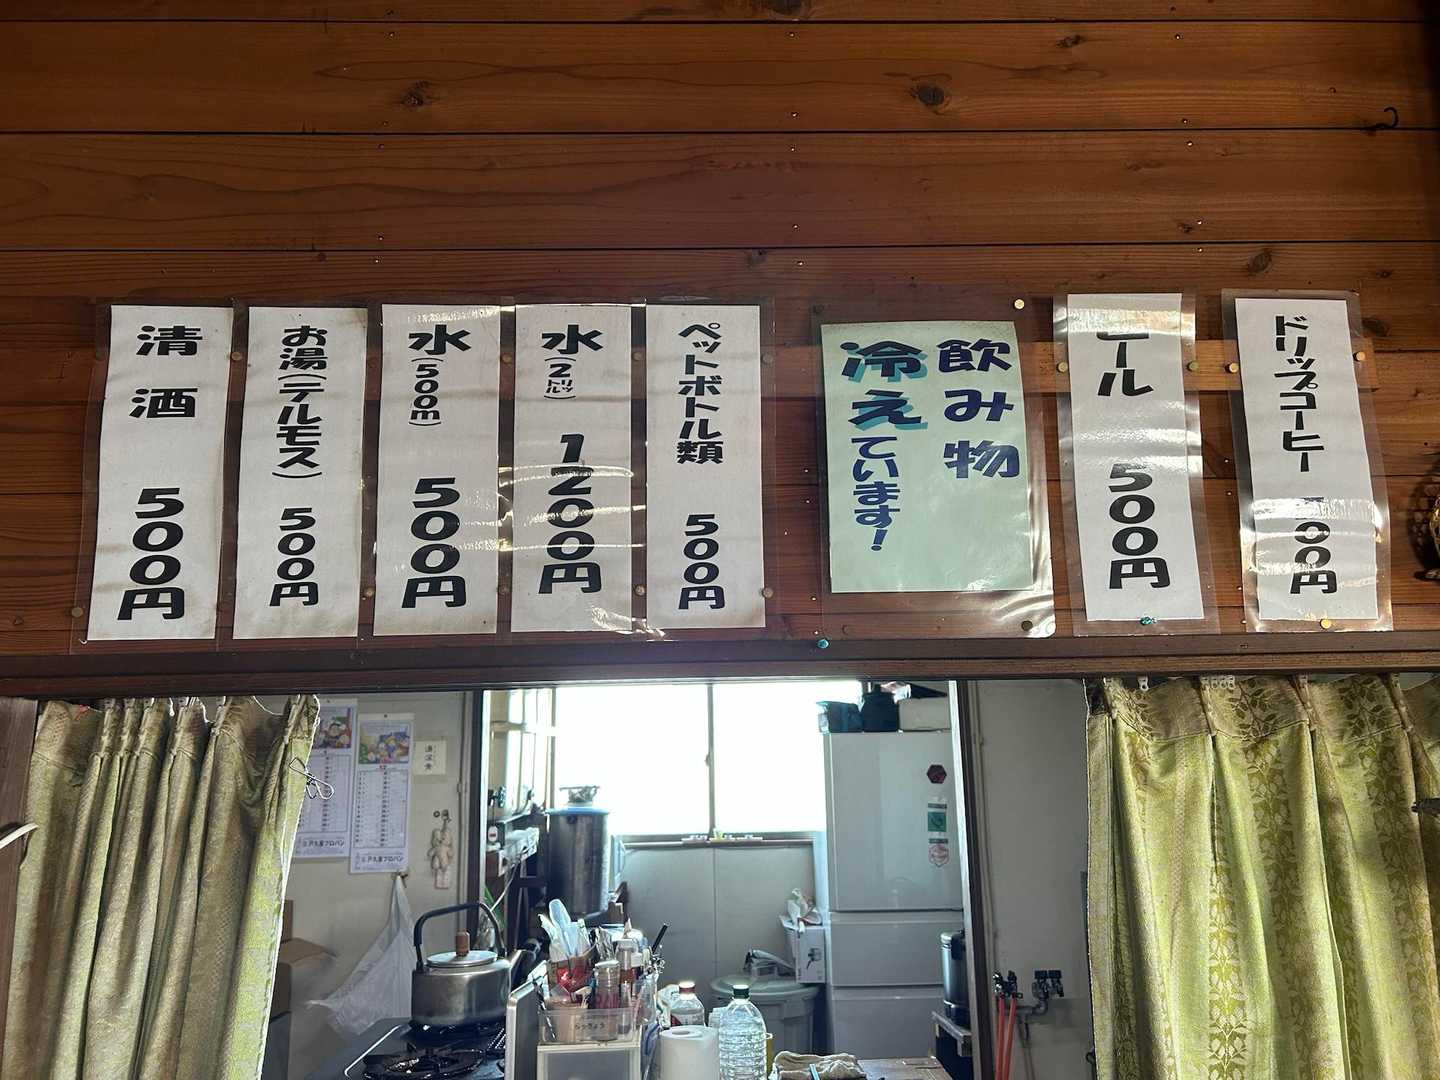 清酒 500円
お湯(テルモス) 500円
水(500m) 500円
水(2リットル) 1200円
ペットボトル類 500円
飲み物
冷えています!
ビール 500円
ドリップコーヒー 00円